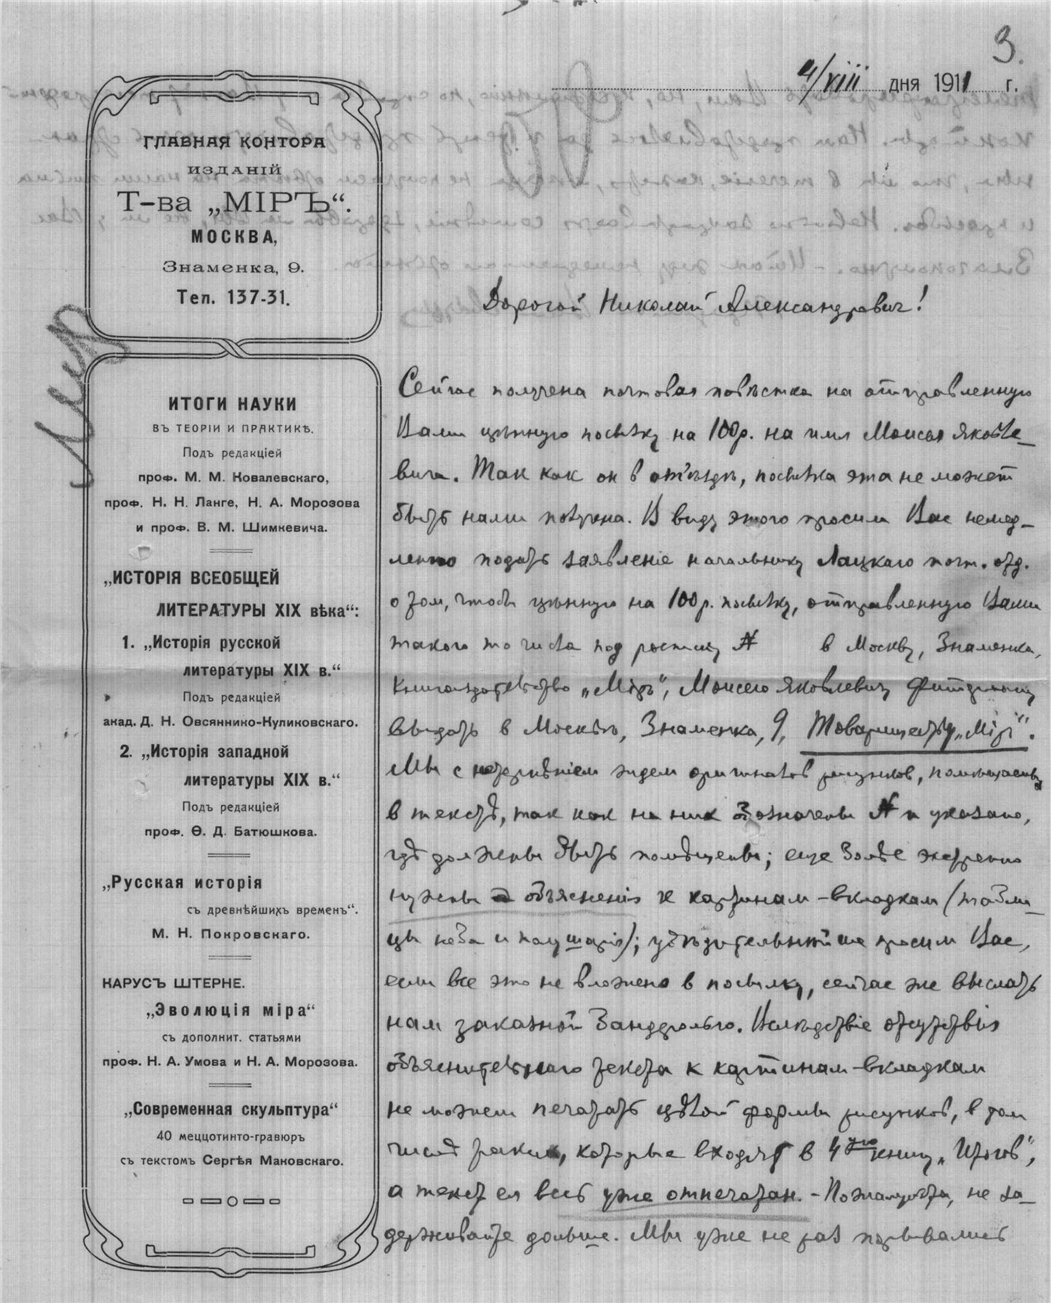 3.
4/VIII дня 1911 г.
ГЛАВНАЯ КОНТОРА
ИЗДАНІЙ
Т-ва „МІРЪ“.
МОСКВА,
Знаменка, 9.
Тел. 137-31.
Мир
ИТОГИ НАУКИ
ВЪ ТЕОРІИ И ПРАКТИКѢ.
Подъ редакціей
проф. М. М. Ковалевскаго,
проф. Н. Н. Ланге, Н. А. Морозова
и проф. В. М. Шимкевича.
„ИСТОРІЯ ВСЕОБЩЕЙ
ЛИТЕРАТУРЫ XIX вѣка“:
1. „Исторія русской
литературы XIX в.“
Подъ редакціей
акад. Д. Н. Овсяннико-Куликовскаго.
2. „Исторія западной
литературы XIX в.“
Подъ редакціей
проф. Ѳ. Д. Батюшкова.
„Русская исторія
съ древнѣйшихъ временъ“.
М. Н. Покровскаго.
КАРУСЪ ШТЕРНЕ.
„Эволюція міра“
съ дополнит. статьями
проф. Н. А. Умова и Н. А. Морозова.
„Современная скульптура“
40 меццотинто-гравюръ
съ текстомъ Сергѣя Маковскаго.
Дорогой Николай Александрович!
Сейчас получена почтовая повѣстка на отправленную
Вами цѣнную посылку на 100 р. на имя Моисея Яковле-
вича. Так как он в отъѣздѣ, посылка эта не может
быть нами получена. В виду этого просим Вас немед-
ленно подать заявленіе начальнику Лацкаго почт. отд.
о том, чтобы цѣнную на 100 р. посылку, отправленную Вами
такого то числа под росписку № в Москву, Знаменка,
Книгоиздательство „Мір“, Моисею Яковлевичу
выдать в Москвѣ, Знаменка, 9, Товариществу „Мір“.
Мы с нетерпѣніем ждем оригиналов рисунков, помѣщаемых
в текстѣ, так как на них обозначены № и указано,
гдѣ должны быть помѣщены; еще болѣе экстренно
нужны объясненія к картинам-вкладкам (табли-
цы неба и полушарія); убѣдительнѣйше просим Вас,
если все это не вложено в посылку, сейчас же выслать
нам заказной бандеролью. Вслѣдствіе отсутствія
объяснительнаго текста к картинам-вкладкам
не можем печатать цѣлой формы рисунков, в том
числѣ таких, которые входят в 4-ую книгу „Итогов“,
а текст ея весь уже отпечатан. - Пожалуйста, не за-
держивайте дольше. Мы уже не раз